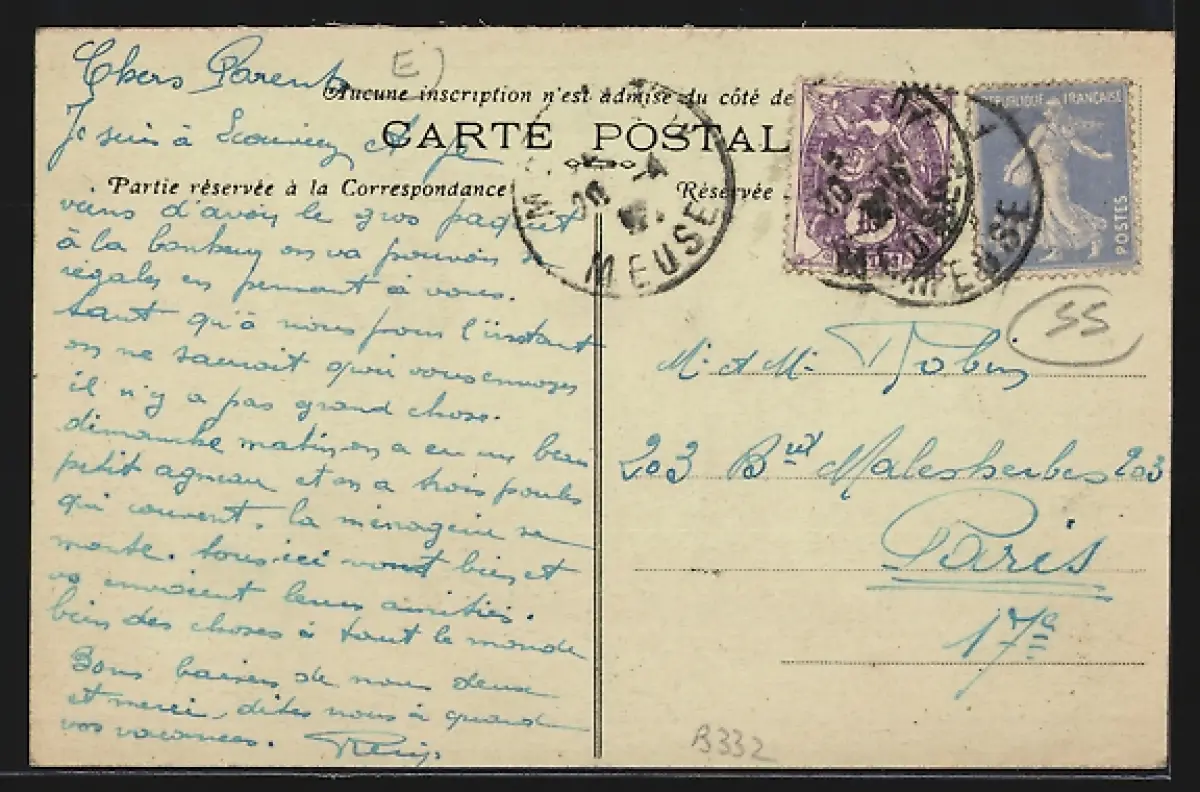 Chers Parents
E)
Aucune inscription n'est admise du côté de
CARTE POSTAL
Partie réservée à la Correspondance
Réservée
Je suis à Ecouviez et je
viens d'avoir le gros paquet
à la bonheur on va pouvoir se
régaler en pensant à vous.
tant qu'à nous pour l'instant
on ne saurait quoi vous envoyer
il n'y a pas grand chose.
dimanche matin on a eu un beau
petit agneau et on a trois poules
qui couvent. la ménagerie se
monte. tous ici vont bien et
vs envoient leurs amitiés.
bien des choses à tout le monde
Bons baisers de nous deux
et merci, dites nous à quand
vos vacances.
MEUSE
RÉPUBLIQUE FRANÇAISE
POSTES
MEUSE
55
Mr et Mme Robin
203 Brd Malesherbes 203
Paris
17e
B332